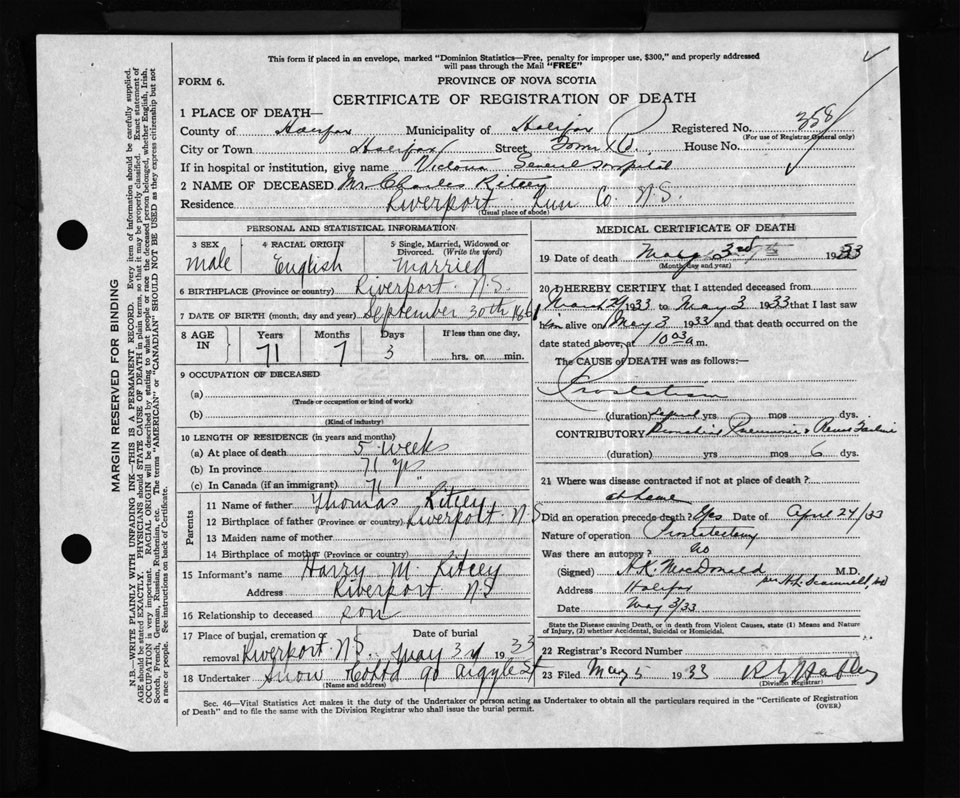 This form if placed in an envelope, marked "Dominion Statistics—Free, penalty for improper use, $300," and properly addressed
will pass through the Mail "FREE"
FORM 6.
PROVINCE OF NOVA SCOTIA
CERTIFICATE OF REGISTRATION OF DEATH
1 PLACE OF DEATH—
358
County of Halifax Municipality of Halifax Registered No.
(For use of Registrar General only)
City or Town Halifax Street House No.
If in hospital or institution, give name Victoria General Hospital
2 NAME OF DECEASED Mr Charles Ritcey
Residence Riverport Lun Co. N.S.
(Usual place of abode)
PERSONAL AND STATISTICAL INFORMATION
3 SEX 4 RACIAL ORIGIN 5 Single, Married, Widowed or Divorced. (Write the word)
male English Married
6 BIRTHPLACE (Province or County) Riverport N.S.
7 DATE OF BIRTH (month, day and year) September 30th
8 AGE IN Years Months Days If less than one day,
71 7 3 hrs. or min.
9 OCCUPATION OF DECEASED
(a)
(Trade or occupation or kind of work)
(b)
(Kind of industry)
10 LENGTH OF RESIDENCE (in years and months)
(a) At place of death 5 weeks
(b) In province 71 yrs
(c) In Canada (if an immigrant) 71 "
Parents
11 Name of father Thomas Ritcey
12 Birthplace of father (Province or country) Riverport N S
13 Maiden name of mother
14 Birthplace of mother (Province or country)
15 Informant's name Harry M. Ritcey
Address Riverport N S
16 Relationship to deceased son
17 Place of burial, cremation or removal Riverport N.S. Date of burial May 3 1933
18 Undertaker Snow & Co Ltd 90 Argyle St
(Name and address)
MEDICAL CERTIFICATE OF DEATH
19 Date of death May 3rd 1933
(Month, day and year)
20 I HEREBY CERTIFY that I attended deceased from
March 29 1933 to May 3 1933 that I last saw
him alive on May 3 1933 and that death occurred on the
date stated above, at 10 03 a m.
The CAUSE OF DEATH was as follows:—
Prostatism
(duration) yrs mos dys.
CONTRIBUTORY Bronchial Pneumonia & Renal Failure
(duration) yrs mos 6 dys.
21 Where was disease contracted if not at place of death?
at home
Did an operation precede death? Yes Date of April 24/33
Nature of operation Prostatectomy
Was there an autopsy? no
(Signed) A.K. MacDonald M.D.
Address Halifax
Date May 3/33
State the Disease causing Death, or in death from Violent Causes, state (1) Means and Nature of Injury, (2) whether Accidental, Suicidal or Homicidal.
22 Registrar's Record Number
23 Filed May 5 1933
Division Registrar
Sec. 46—Vital Statistics Act makes it the duty of the Undertaker or person acting as Undertaker to obtain all the particulars required in the "Certificate of Registration
of Death" and to file the same with the Division Registrar who shall issue the burial permit.
(OVER)
MARGIN RESERVED FOR BINDING
N.B.—WRITE PLAINLY WITH UNFADING INK—THIS IS A PERMANENT RECORD. Every item of information should be carefully supplied.
AGE should be stated EXACTLY. PHYSICIANS should STATE CAUSE OF DEATH in plain terms, so that it may be properly classified. Exact statement of
OCCUPATION is very important. RACIAL ORIGIN will be described by stating to what people or race the deceased person belonged, whether English, Irish,
Scotch, French, German, Russian, Ruthenian, etc. The terms "AMERICAN" or "CANADIAN" SHOULD NOT BE USED as they express citizenship but not
a race or people. See instructions on back of Certificate.